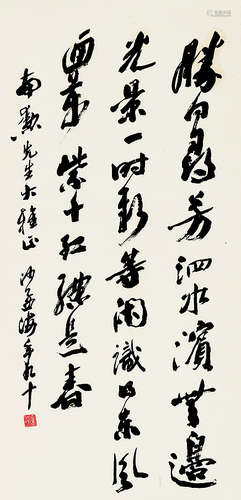 勝日尋芳泗水濱無邊
光景一時新等閒識得東風
面萬紫千紅總是春
南 先生大雅正 沙孟海年九十